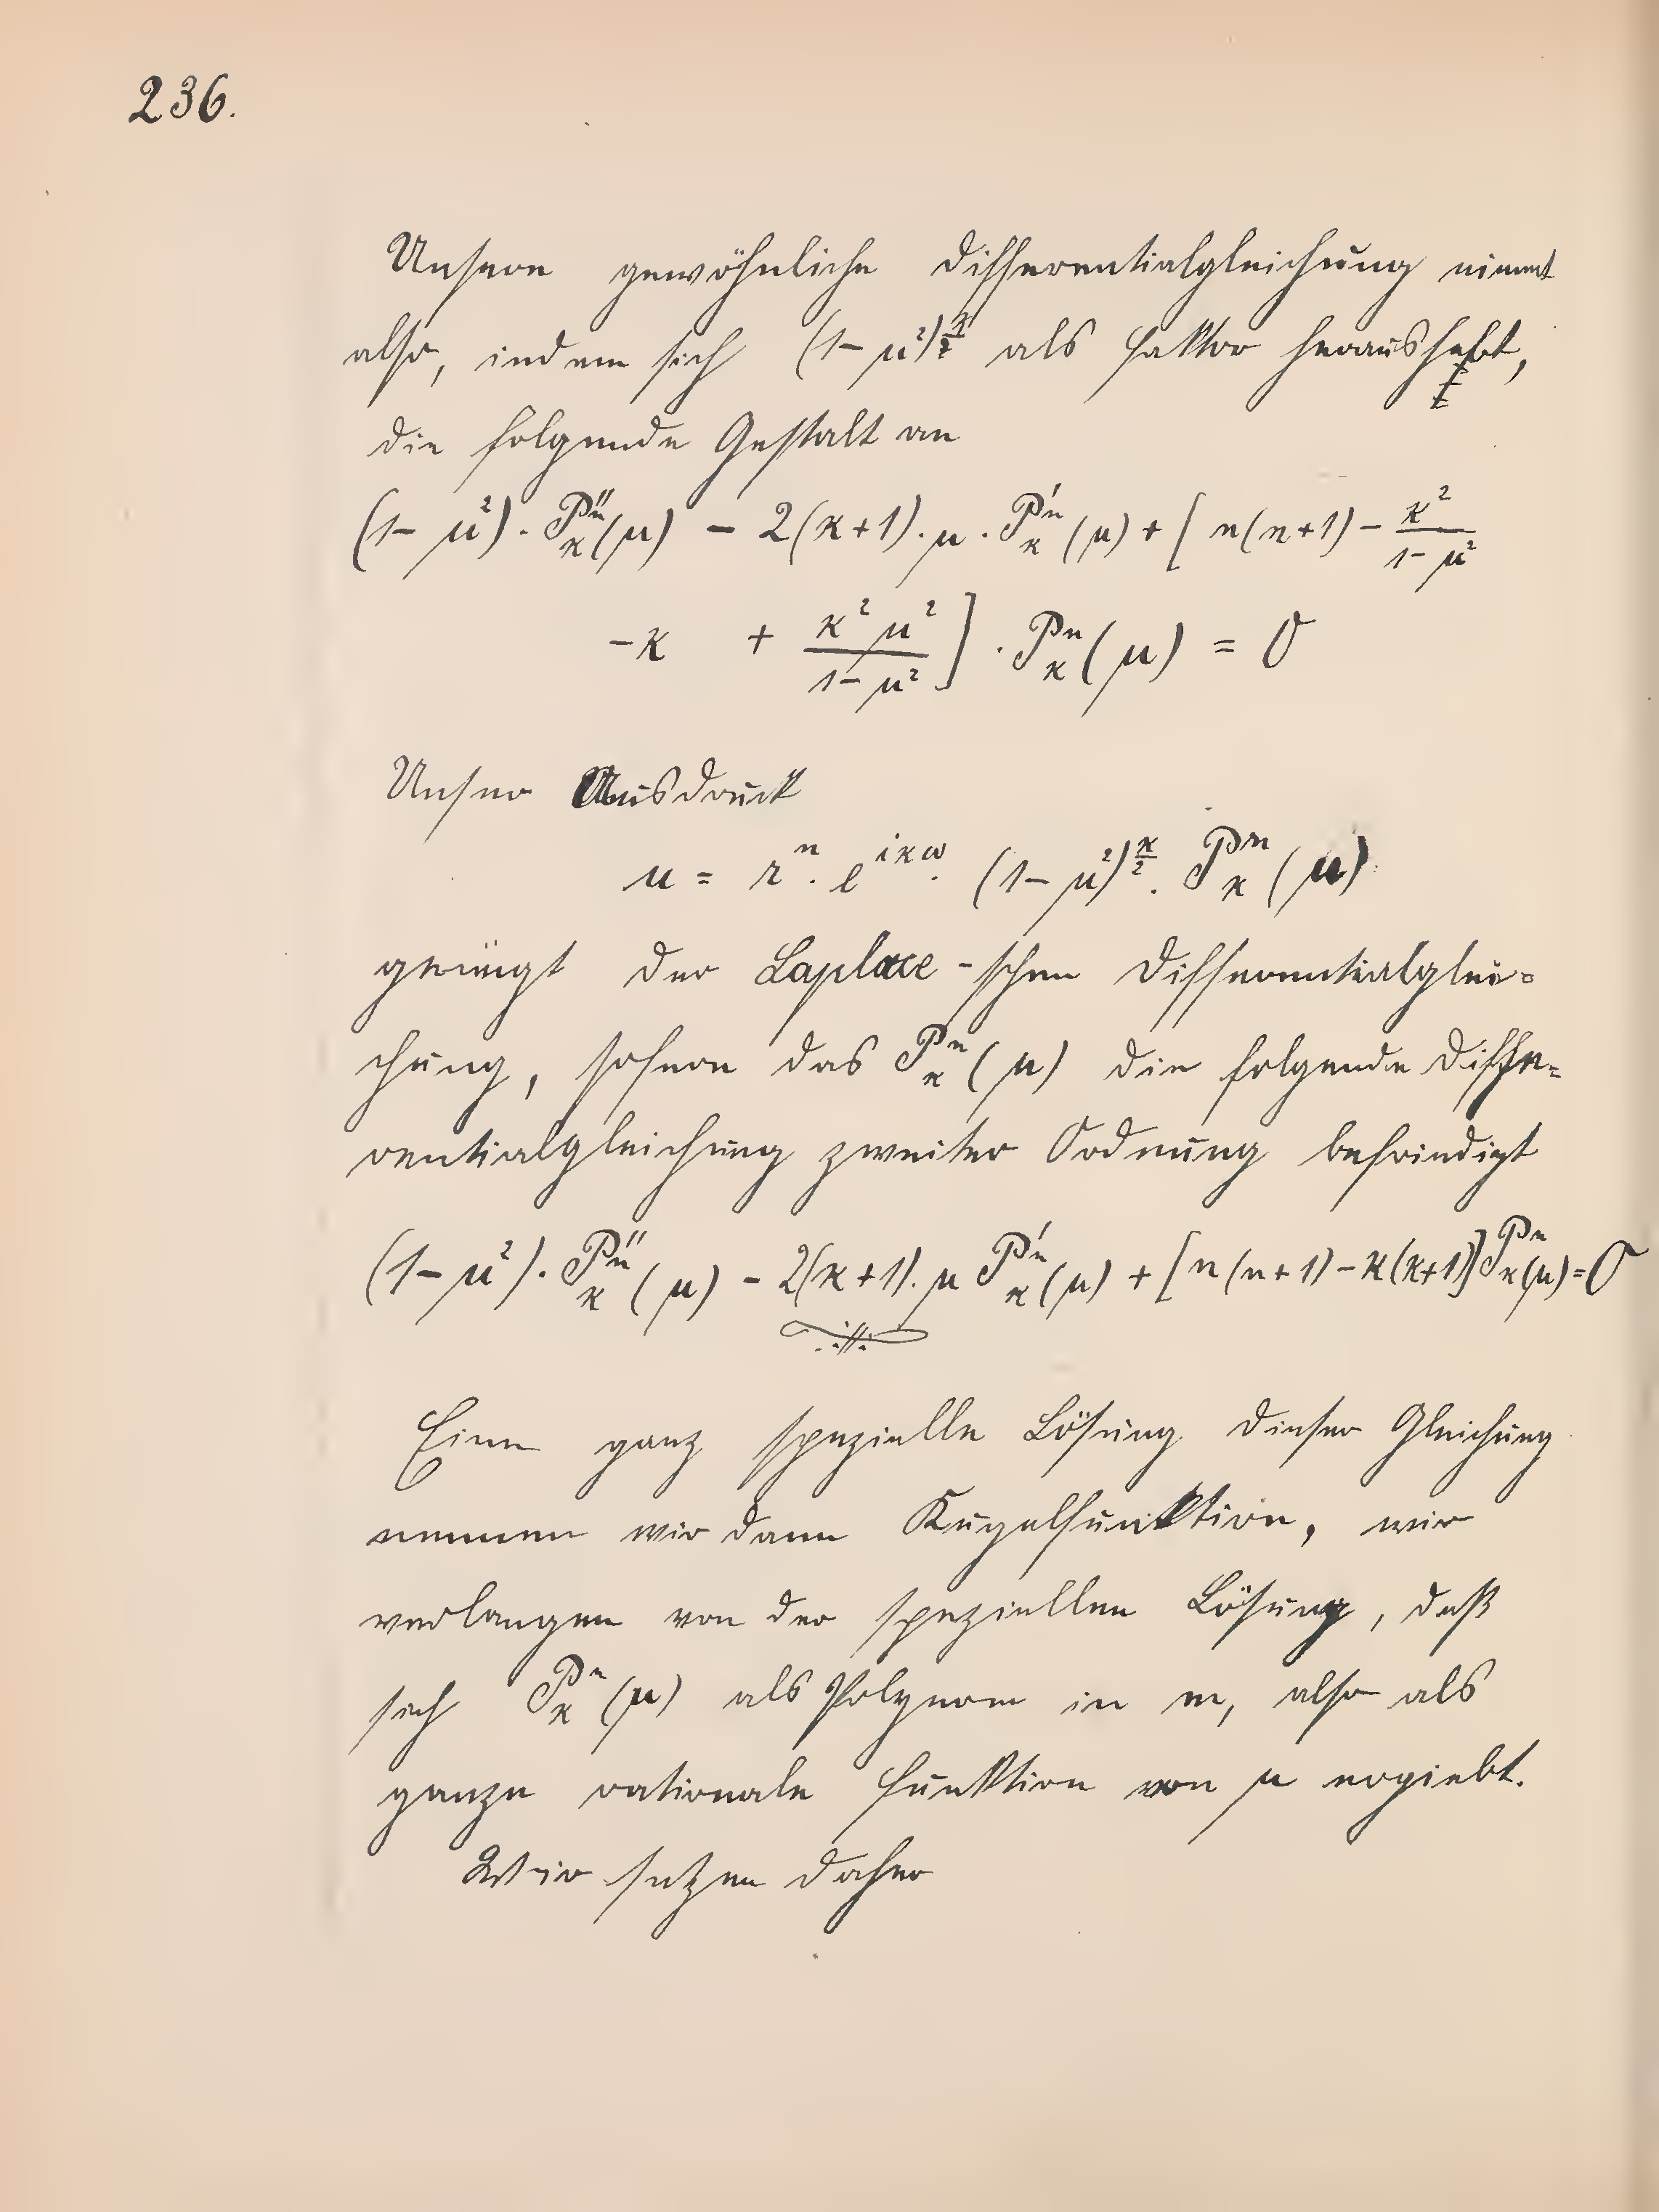 236.
Unsere gewöhnliche Differentialgleichung nimmt
also, indem sich (1-μ²)^{κ/2} als Faktor heraushebt,
die folgende Gestalt an
(1-μ²)·P''ⁿ_κ(μ) - 2(κ+1)·μ·P'ⁿ_κ(μ) + [n(n+1) - κ²/(1-μ²)
-κ + κ²μ²/(1-μ²)]·Pⁿ_κ(μ) = 0
Unser Ausdruck
u = rⁿ·e^{iκω}·(1-μ²)^{κ/2}·Pⁿ_κ(μ)
genügt der Laplace-schen Differentialglei=
chung, sofern das Pⁿ_κ(μ) die folgende Diffe=
rentialgleichung zweiter Ordnung befriedigt
(1-μ²)·P''ⁿ_κ(μ) - 2(κ+1)·μ P'ⁿ_κ(μ) + [n(n+1) - κ(κ+1)]Pⁿ_κ(μ)=0
Eine ganz spezielle Lösung dieser Gleichung
nennen wir dann Kugelfunktion, wir
verlangen von der speziellen Lösung, daß
sich Pⁿ_κ(μ) als Polynom in m, also als
ganze rationale Funktion von μ ergiebt.
Wir setzen daher